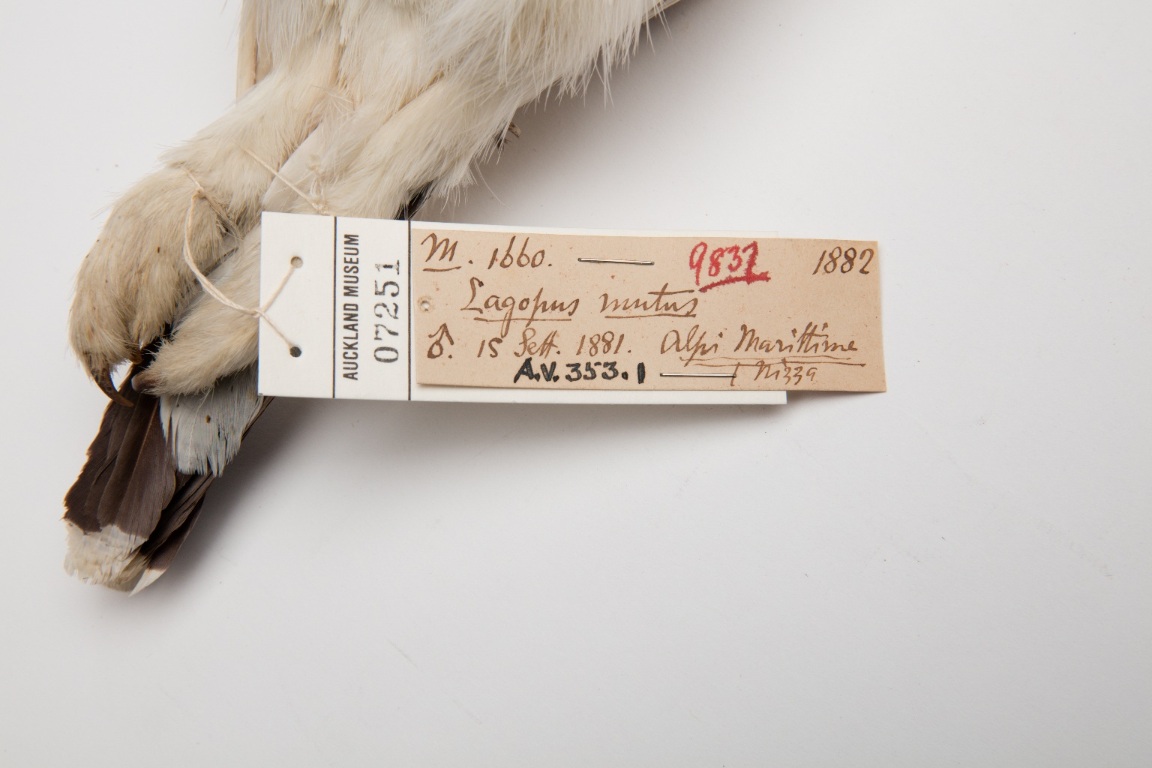 AUCKLAND MUSEUM
07251
M. 1660. 9832 1882
Lagopus mutus
♂. 15 Sett. 1881. Alpi Marittime
A.V. 353.1 Nizza